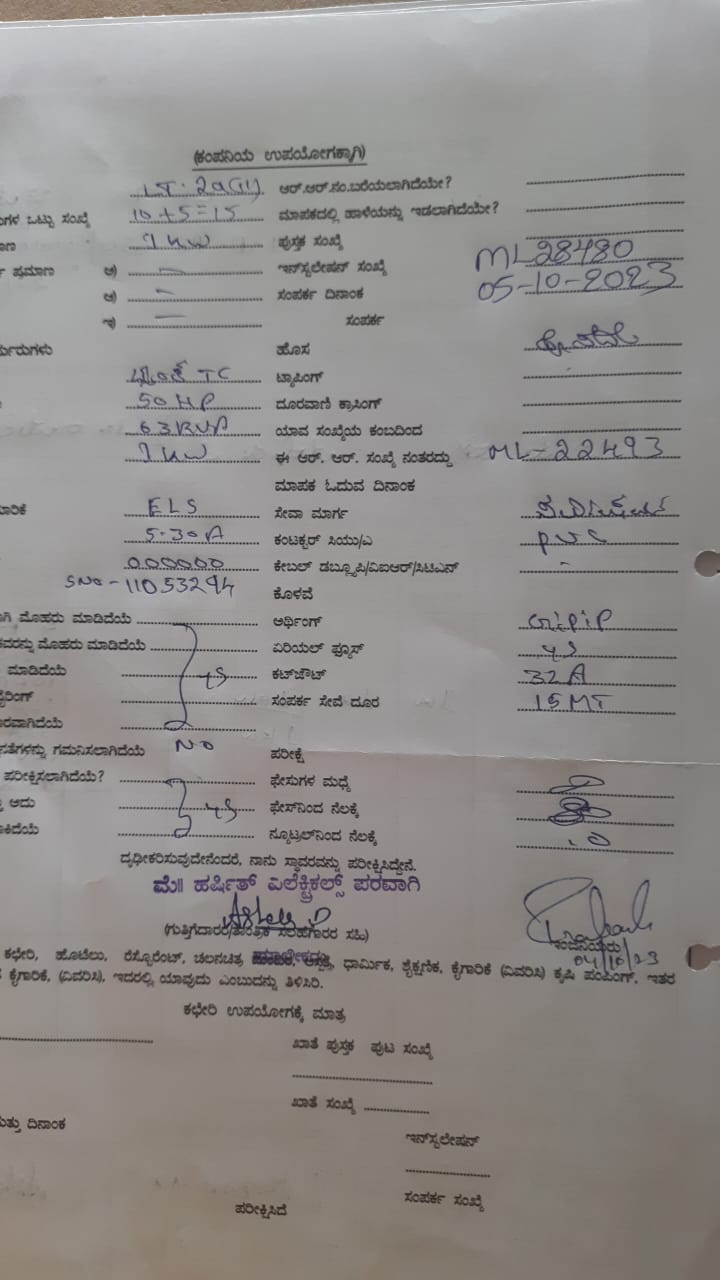 (ಕಂಪನಿಯ ಉಪಯೋಗಕ್ಕಾಗಿ)
LT-2a(ii) ಆರ್.ಆರ್.ನಂ.ಬರೆಯಲಾಗಿದೆಯೇ?
ಗಳ ಒಟ್ಟು ಸಂಖ್ಯೆ 10+5=15 ಮಾಪಕದಲ್ಲಿ ಹಾಳೆಯನ್ನು ಇಡಲಾಗಿದೆಯೇ?
9 KW ಪುಸ್ತಕ ಸಂಖ್ಯೆ
ಪ್ರಮಾಣ ಅ) – ಇನ್‌ಸ್ಟಲೇಷನ್ ಸಂಖ್ಯೆ ML28480
ಆ) – ಸಂಪರ್ಕ ದಿನಾಂಕ 05-10-2023
ಇ) – ಸಂಪರ್ಕ
ಹೊಸ
TC ಟ್ಯಾಪಿಂಗ್
50 HP ದೂರವಾಣಿ ಕ್ರಾಸಿಂಗ್
63 KVA ಯಾವ ಸಂಖ್ಯೆಯ ಕಂಬದಿಂದ
9 KW ಈ ಆರ್. ಆರ್. ಸಂಖ್ಯೆ ನಂತರದ್ದು ML-22493
ಮಾಪಕ ಓದುವ ದಿನಾಂಕ
ELS ಸೇವಾ ಮಾರ್ಗ
5-30A ಕಂಟಕ್ಟರ್ ಸಿಯು/ಎ PVC
000000 ಕೇಬಲ್ ಡಬ್ಲ್ಯೂಪಿ/ವಿಐಆರ್/ಸಿಟಿಎನ್ -
SNo-11053294 ಕೊಳವೆ
ಗಿ ಮೊಹರು ಮಾಡಿದೆಯೆ ಆರ್ಥಿಂಗ್ GI PiP
ವರನ್ನು ಮೊಹರು ಮಾಡಿದೆಯೆ ಏರಿಯಲ್ ಫ್ಯೂಸ್ ys
ಮಾಡಿದೆಯೆ ys ಕಟ್‌ಔಟ್ 32A
ಸಂಪರ್ಕ ಸೇವೆ ದೂರ 15MT
ರವಾಗಿದೆಯೆ
ನತೆಗಳನ್ನು ಗಮನಿಸಲಾಗಿದೆಯೆ No ಪರೀಕ್ಷೆ
ಪರಿಕ್ಷಿಸಲಾಗಿದೆಯೆ? ಫೇಸುಗಳ ಮಧ್ಯೆ
ಅದು ys ಫೇಸ್‌ನಿಂದ ನೆಲಕ್ಕೆ
ಕಿದೆಯೆ ನ್ಯೂಟ್ರಲ್‌ನಿಂದ ನೆಲಕ್ಕೆ
ದೃಢೀಕರಿಸುವುದೇನೆಂದರೆ, ನಾನು ಸ್ಥಾವರವನ್ನು ಪರೀಕ್ಷಿಸಿದ್ದೇನೆ.
ಮೆ॥ ಹರ್ಷಿತ್ ಎಲೆಕ್ಟ್ರಿಕಲ್ಸ್ ಪರವಾಗಿ
(ಗುತ್ತಿಗೆದಾರರ/ತಾಂತ್ರಿಕ ಸಲಹೆಗಾರರ ಸಹಿ) ಇಂಜಿನಿಯರು
04/10/23
ಕಛೇರಿ, ಹೊಟೆಲು, ರೆಸ್ಟೊರೆಂಟ್, ಚಲನಚಿತ್ರ ಧಾರ್ಮಿಕ, ಶೈಕ್ಷಣಿಕ, ಕೈಗಾರಿಕೆ (ವಿವರಿಸಿ) ಕೃಷಿ ಪಂಪಿಂಗ್, ಇತರ
ಕೈಗಾರಿಕೆ, (ವಿವರಿಸಿ), ಇದರಲ್ಲಿ ಯಾವುದು ಎಂಬುದನ್ನು ತಿಳಿಸಿರಿ.
ಕಛೇರಿ ಉಪಯೋಗಕ್ಕೆ ಮಾತ್ರ
ಖಾತೆ ಪುಸ್ತಕ ಪುಟ ಸಂಖ್ಯೆ
ಖಾತೆ ಸಂಖ್ಯೆ
ಮತ್ತು ದಿನಾಂಕ
ಇನ್‌ಸ್ಟಲೇಷನ್
ಸಂಪರ್ಕ ಸಂಖ್ಯೆ
ಪರೀಕ್ಷಿಸಿದೆ